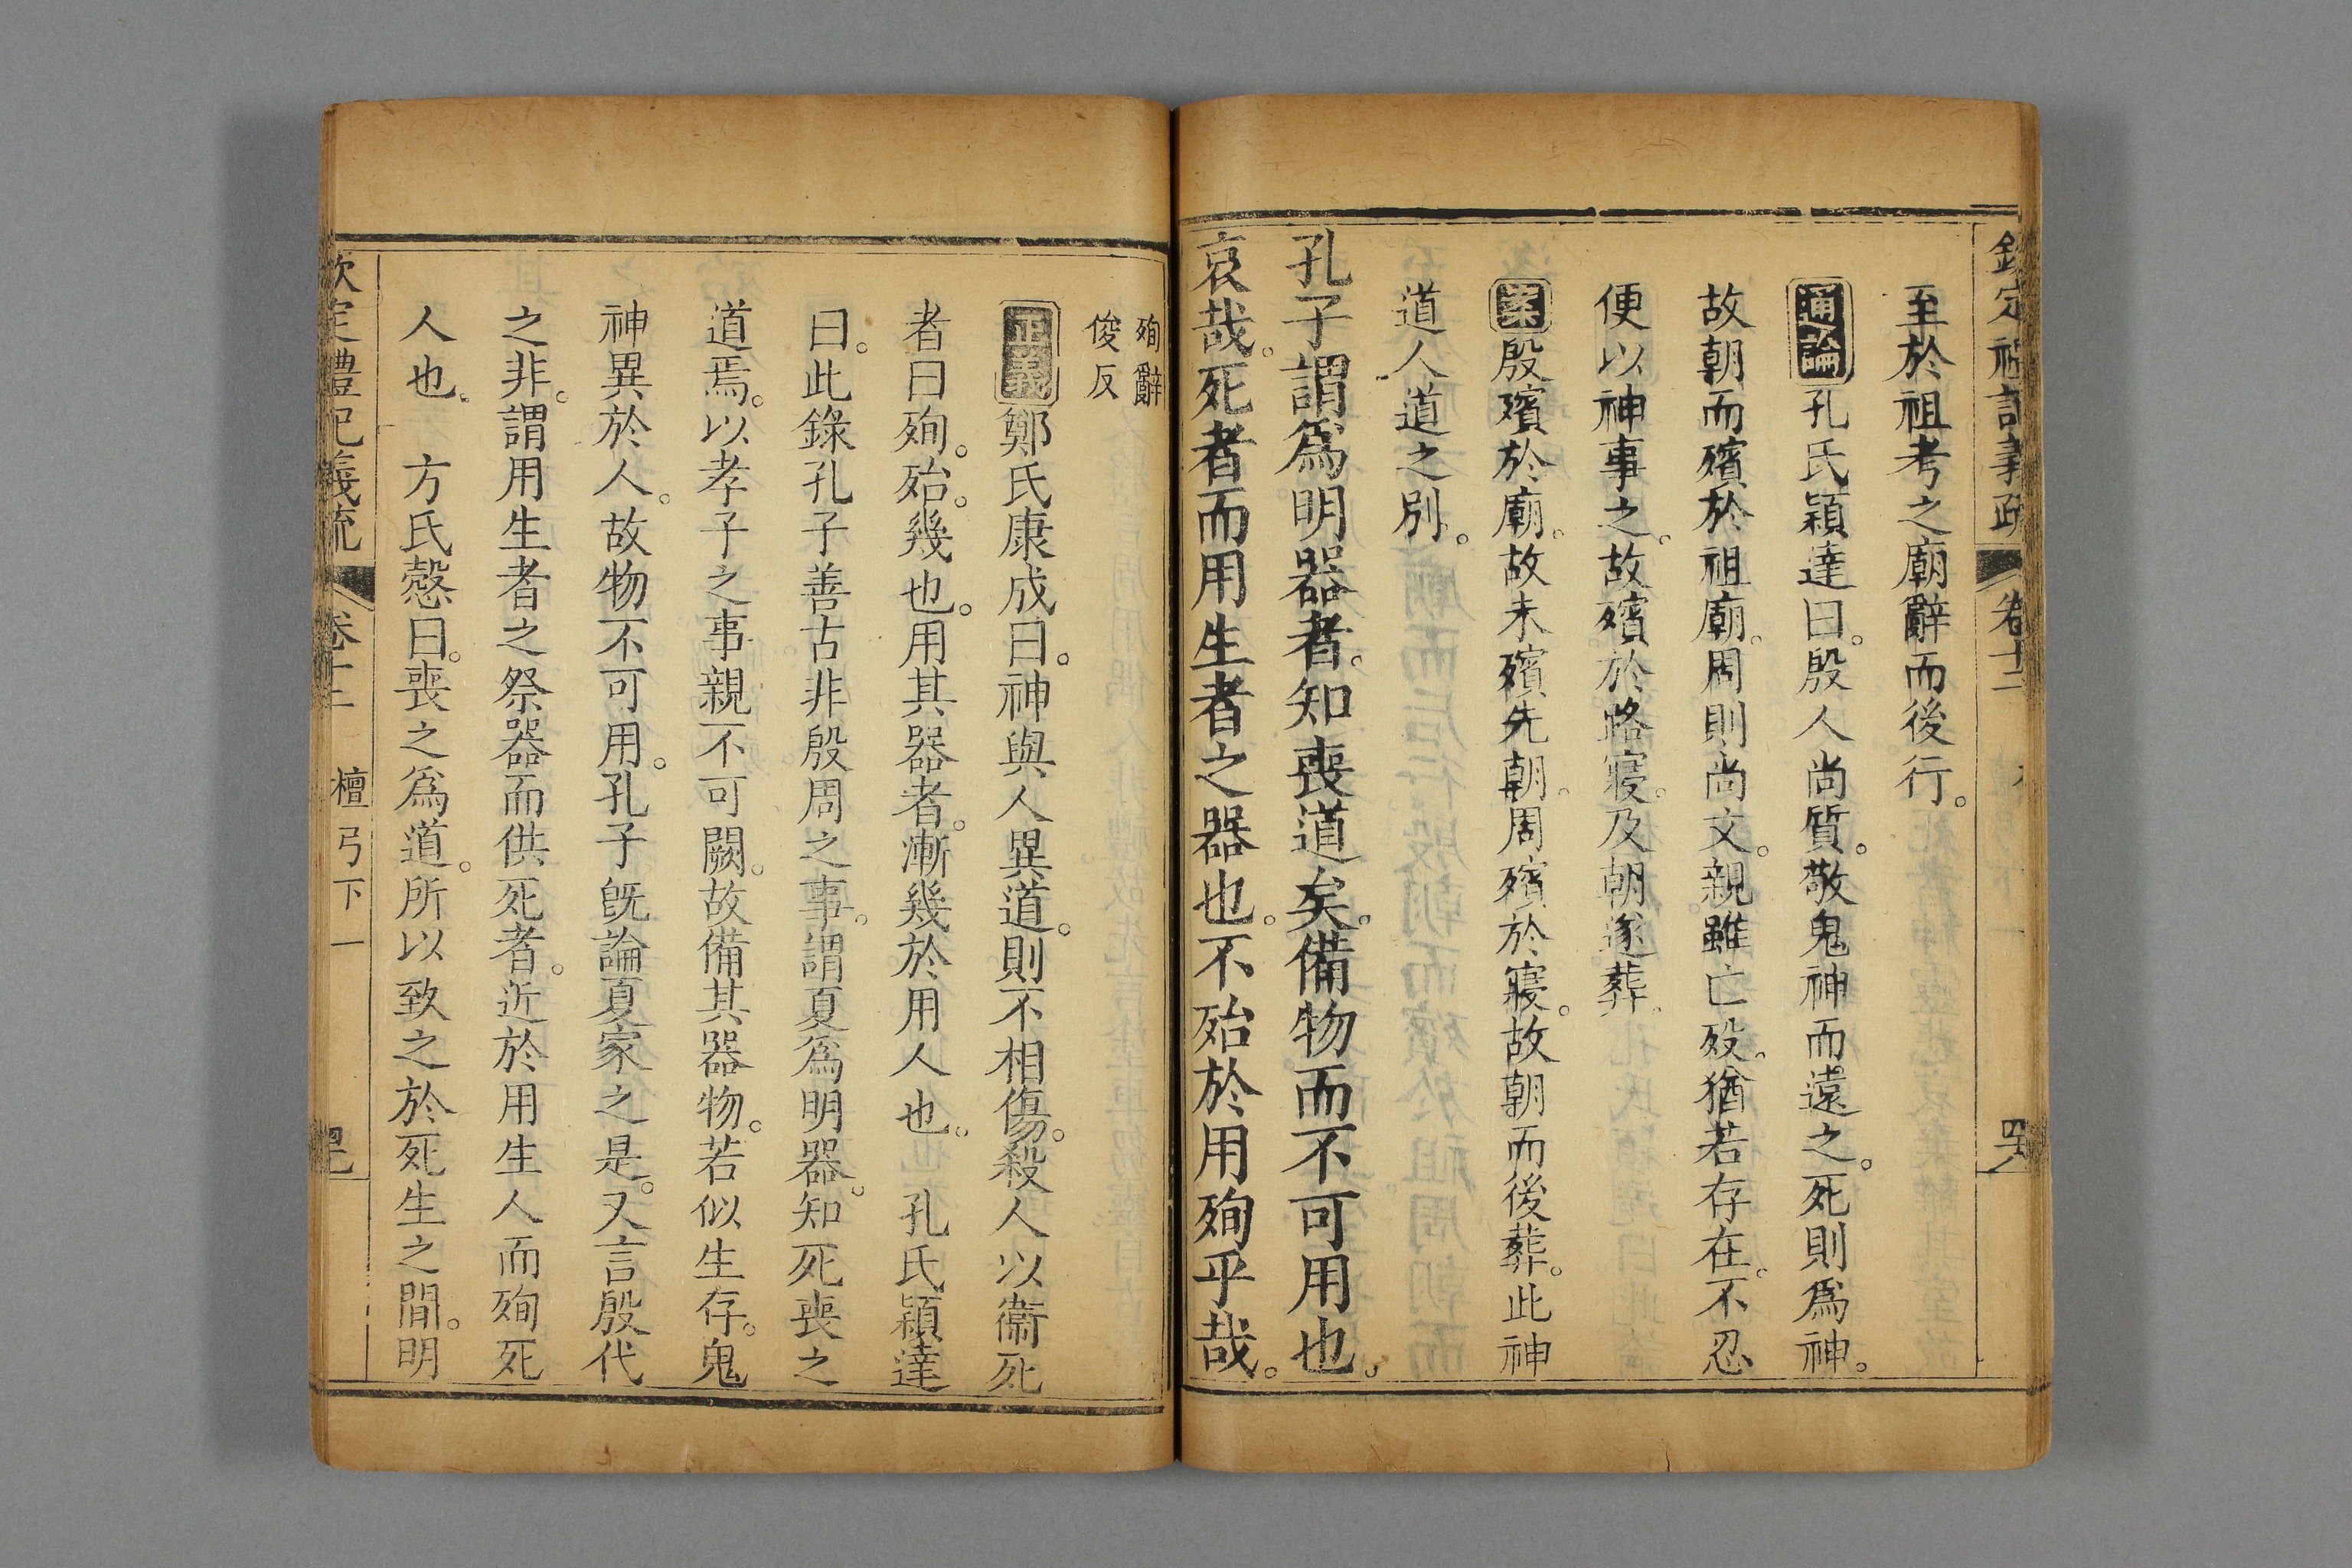 欽定禮記義疏 卷十二
至於祖考之廟辭而後行。
通論孔氏穎達曰。殷人尚質。敬鬼神而遠之。死則爲神。
故朝而殯於祖廟。周則尚文。親雖亡歿。猶若存在。不忍
便以神事之。故殯於路寢。及朝遂葬。
案殷殯於廟。故未殯先朝。周殯於寢。故朝而後葬。此神
道人道之別。
孔子謂爲明器者。知喪道矣。備物而不可用也。
哀哉。死者而用生者之器也。不殆於用殉乎哉。
殉辭
俊反
正義鄭氏康成曰。神與人異道。則不相傷。殺人以衞死
者曰殉。殆。幾也。用其器者。漸幾於用人也。 孔氏穎達
曰。此錄孔子善古非殷周之事。謂夏爲明器。知死喪之
道焉。以孝子之事親不可闕。故備其器物。若似生存。鬼
神異於人。故物不可用。孔子旣論夏家之是。又言殷代
之非。謂用生者之祭器而供死者。近於用生人而殉死
人也。 方氏慤曰。喪之爲道。所以致之於死生之間。明
欽定禮記義疏 卷十二 檀弓下一